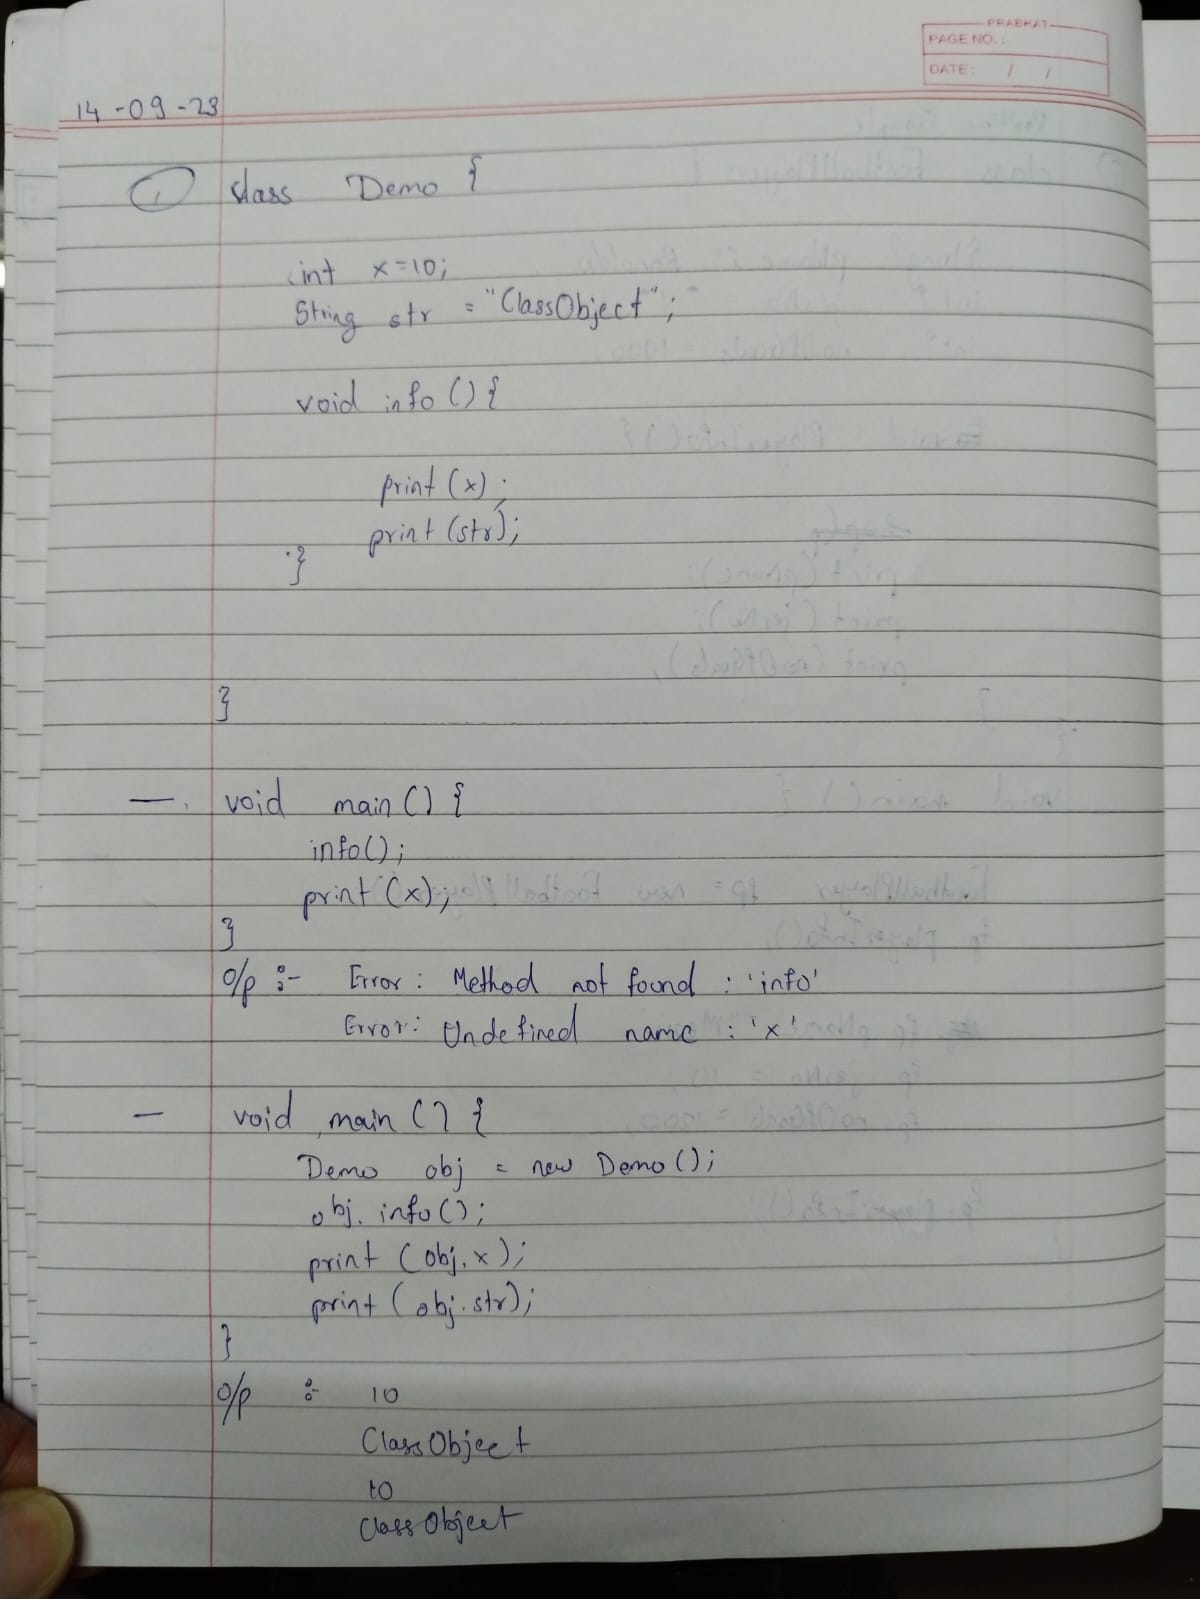 PRABHAT
PAGE NO.:
DATE: / /
14-09-23
1 class Demo {
int x=10;
String str = "ClassObject";
void info () {
print (x);
print (str);
}
}
— void main () {
info ();
print (x);
}
o/p :- Error : Method not found : 'info'
Error : Undefined name : 'x'
— void main () {
Demo obj = new Demo ();
obj. info ();
print (obj.x);
print (obj.str);
}
o/p :- 10
ClassObject
10
ClassObject